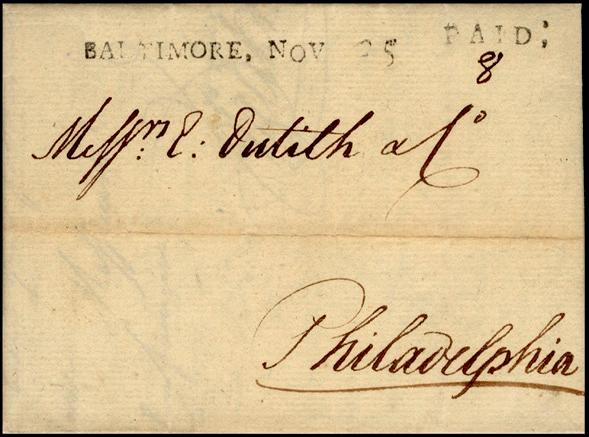 BALTIMORE, NOV 25 PAID;
8
Messrs. E: Dutilh & Co
Philadelphia